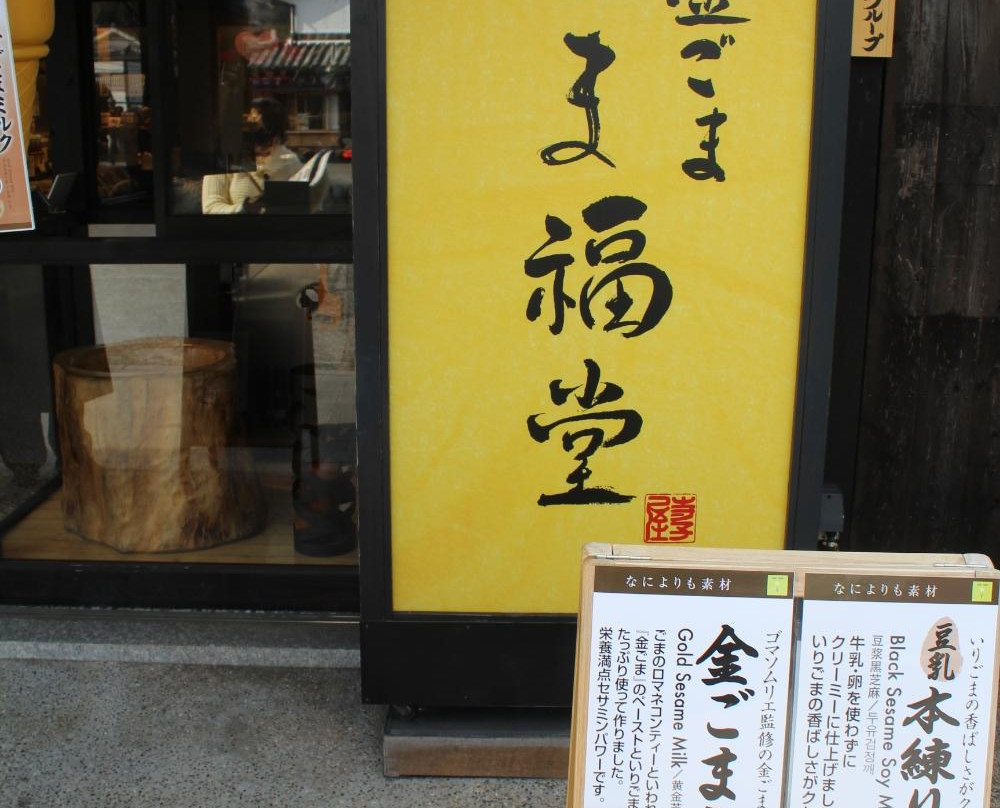 金ごま
ま福堂
寿屋
ループ
ミルク
なによりも素材
ゴマソムリエ監修の金ごま
金ごま
Gold Sesame Milk／黄金芝
ごまのロマネコンティーといわれ
『金ごま』のペーストといりごま
たっぷり使って作りました。
栄養満点セサミンパワーです。
なによりも素材
いりごまの香ばしさがク
豆乳
本練り
Black Sesame Soy M
豆浆黑芝麻／두유검정깨
牛乳・卵を使わずに
クリーミーに仕上げまし
いりごまの香ばしさがク